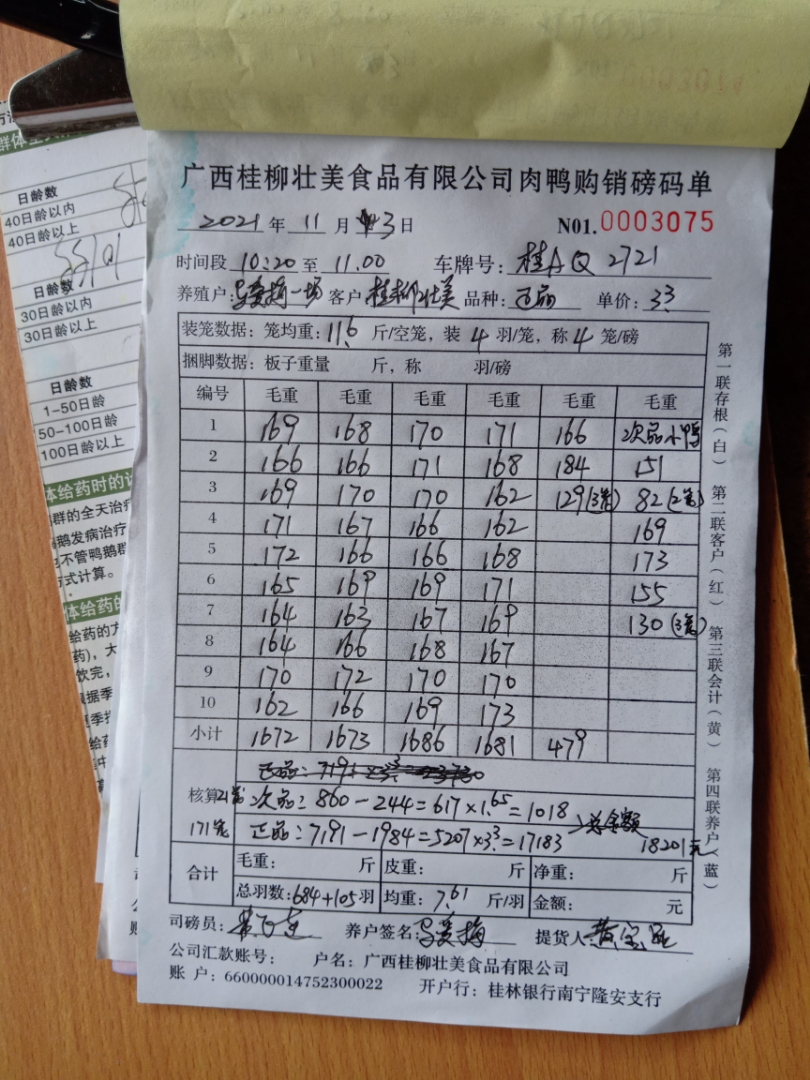 广西桂柳壮美食品有限公司肉鸭购销磅码单
2021 年 11 月 13 日 N01.0003075
时间段 10:20 至 11.00 车牌号: 桂AQ 2721
养殖户: 一场 客户 桂柳壮美 品种: 正品 单价: 3.3
装笼数据: 笼均重: 11.6 斤/空笼, 装 4 羽/笼, 称 4 笼/磅
捆脚数据: 板子重量 斤, 称 羽/磅
编号 毛重 毛重 毛重 毛重 毛重 毛重
1 169 168 170 171 166 次品小鸭
2 166 166 171 168 184 151
3 169 170 170 162 129(3笼) 82(2笼)
4 171 167 166 162 169
5 172 166 166 168 173
6 165 169 169 171 155
7 164 163 167 169 130(3笼)
8 164 166 168 167
9 170 172 170 170
10 162 166 169 173
小计 1672 1673 1686 1681 479
正品: 7191
核算 21笼 次品: 860-244=617×1.65=1018
171笼 正品: 7191-1984=5207×3.3=17183 总金额 18201元
合计 毛重: 斤 皮重: 斤 净重: 斤
总羽数: 684+105羽 均重: 7.61 斤/羽 金额: 元
司磅员: 养户签名: 提货人:
公司汇款账号: 户名: 广西桂柳壮美食品有限公司
账 户: 660000014752300022 开户行: 桂林银行南宁隆安支行
第一联存根(白) 第二联客户(红) 第三联会计(黄) 第四联养户(蓝)
日龄数
40日龄以内
40日龄以上
日龄数
30日龄以内
30日龄以上
日龄数
1-50日龄
50-100日龄
100日龄以上
体给药时的
群的全天治疗
鹅发病治疗
不管鸭鹅群
方式计算。
体给药的
给药的方
药), 大
饮完,